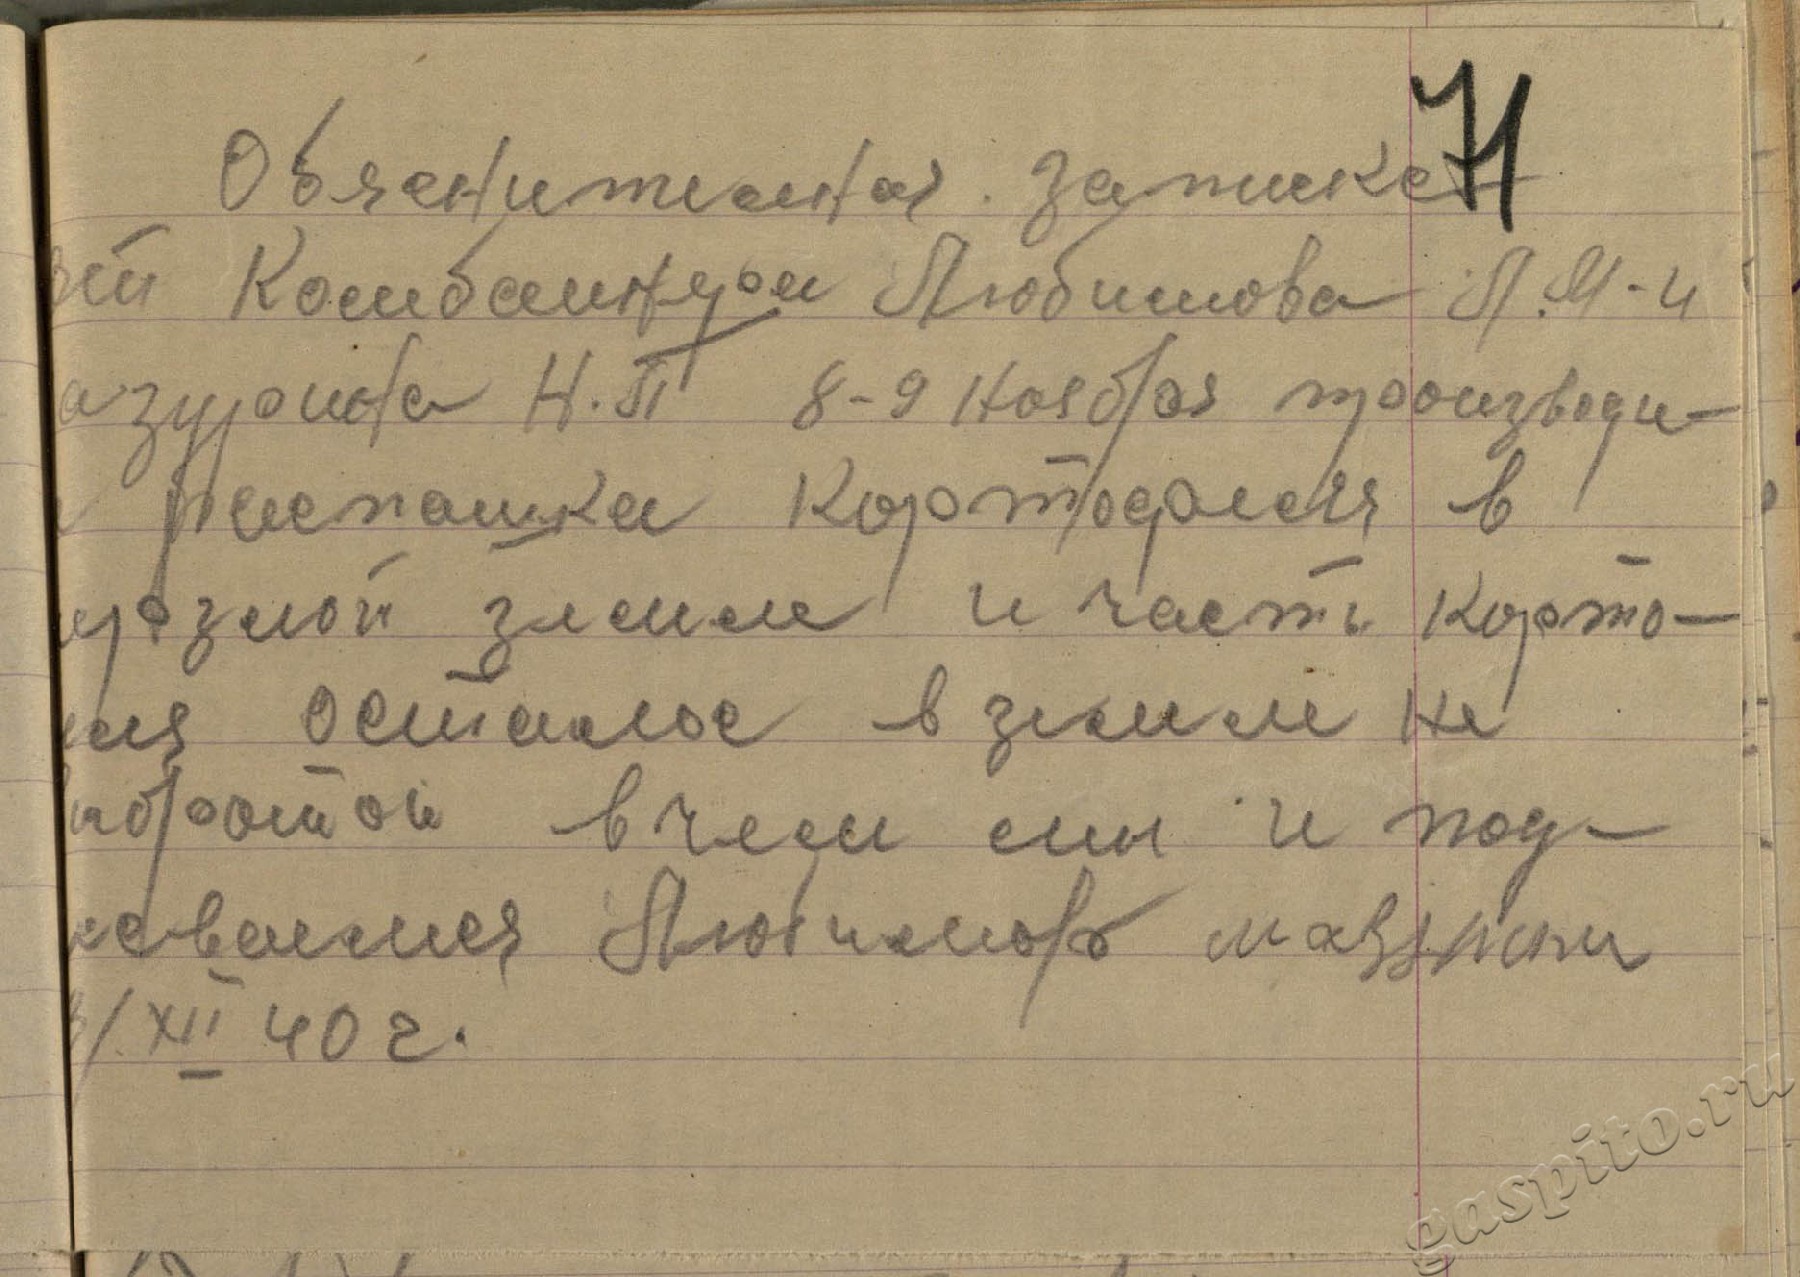 71
Обяснителная записка
ей Комбаинера Любимова П.М-и
азурина Н.П 8-9 Ноября производи-
распашка Кортофеля в
мрозлой земле и часть корто-
еля осталос в земле не
ыбротой в чем мы и под-
сваемся Любимов мазурин
3/XII 40 г.
gaspito.ru